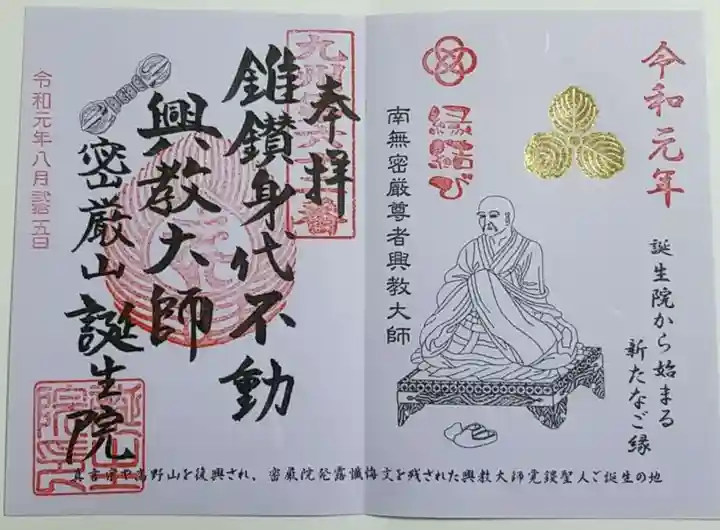 令和元年
誕生院から始まる
新たなご縁
縁結び
南無密厳尊者興教大師
奉拝
錐鑽身代不動
興教大師
密厳山 誕生院
令和元年八月弐拾五日
真言宗中高野山を復興され、密厳院発露懺悔文を残された興教大師覚鑁聖人ご誕生の地